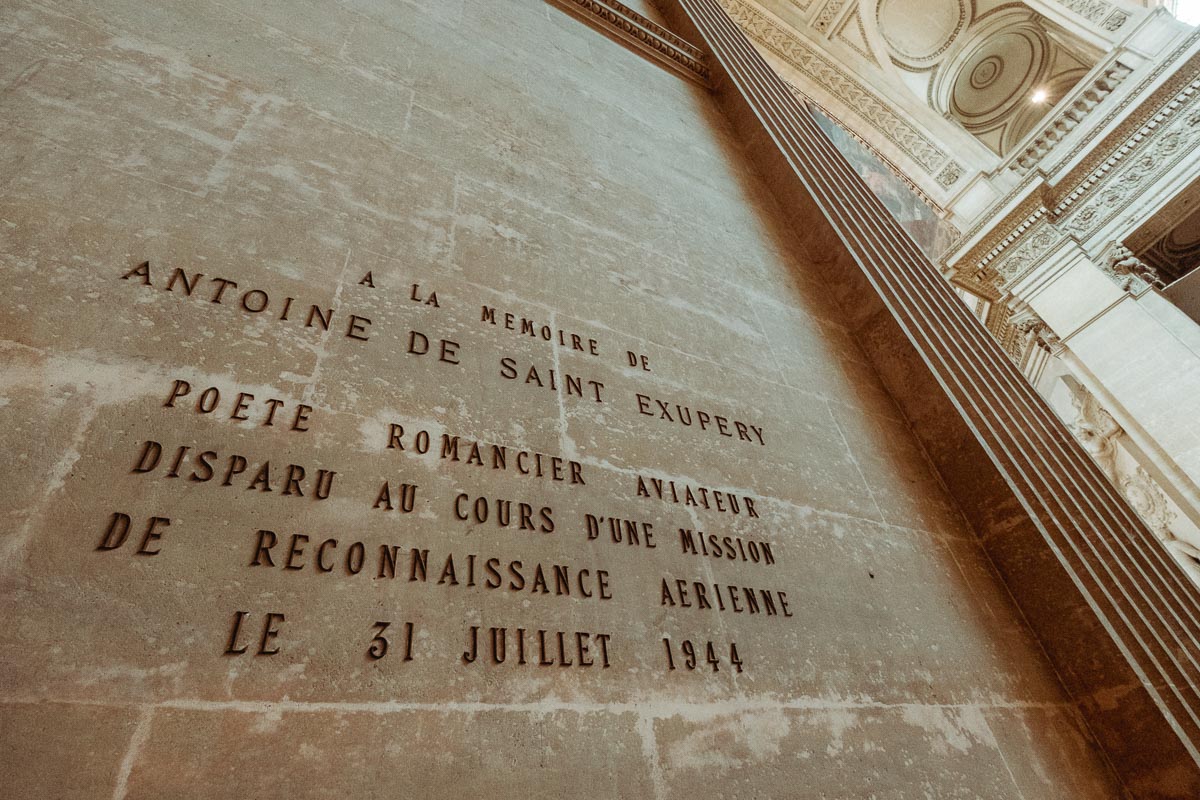 A LA MEMOIRE DE
ANTOINE DE SAINT EXUPERY
POETE ROMANCIER AVIATEUR
DISPARU AU COURS D'UNE MISSION
DE RECONNAISSANCE AERIENNE
LE 31 JUILLET 1944